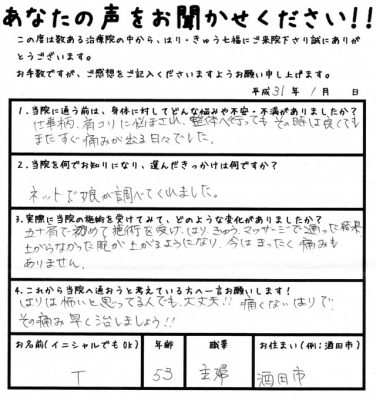 あなたの声をお聞かせください!!
この度は数ある治療院の中から、はり・きゅう七福にご来院下さり誠にありが
とうございます。
お手数ですが、ご感想をご記入くださいますようお願い申し上げます。
平成31年 1月 日
1.当院に通う前は、身体に対してどんな悩みや不安・不満がありましたか?
仕事柄、肩コリに悩まされ、整体へ行っても その時は良くても
またすぐ痛みが出る日々でした。
2.当院を何でお知りになり、選んだきっかけは何ですか?
ネットで娘が調べてくれました。
3.実際に当院の施術を受けてみて、どのような変化がありましたか?
五十肩で初めて施術を受け、はり、きゅう、マッサージで通った結果
上がらなかった腕が上がるようになり、今はまったく痛みも
ありません。
4.これから当院へ通おうと考えている方へ一言お願いします!
はりは怖いと思ってる人でも、大丈夫!! 痛くないはりで、
その痛み早く治しましょう!!
お名前(イニシャルでもOK) 年齢 職業 お住まい(例:酒田市)
T 53 主婦 酒田市